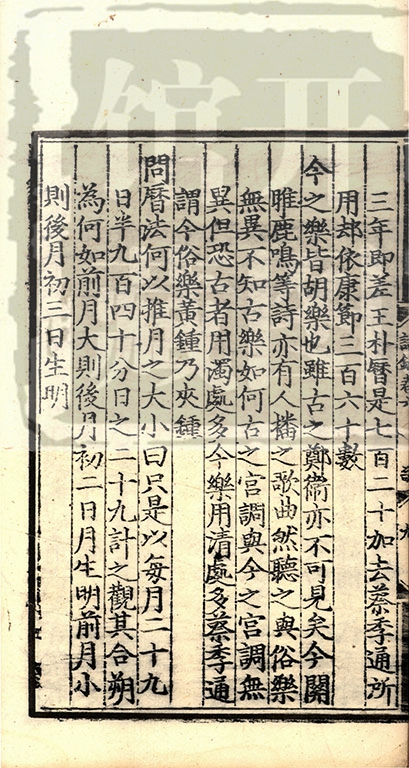 三年即差王朴曆是七百二十加去蔡季通所
用却依康節三百六十數
今之樂皆胡樂也雖古之鄭衛亦不可見矣今關
雎鹿鳴等詩亦有人播之歌曲然聽之與俗樂
無異不知古樂如何古之宮調與今之宮調無
異但恐古者用濁處多今樂用清處多蔡季通
謂今俗樂黃鍾乃夾鍾
問曆法何以推月之大小曰只是以每月二十九
日半九百四十分日之二十九計之觀其合朔
為何如前月大則後月初二日月生明前月小
則後月初三日生明